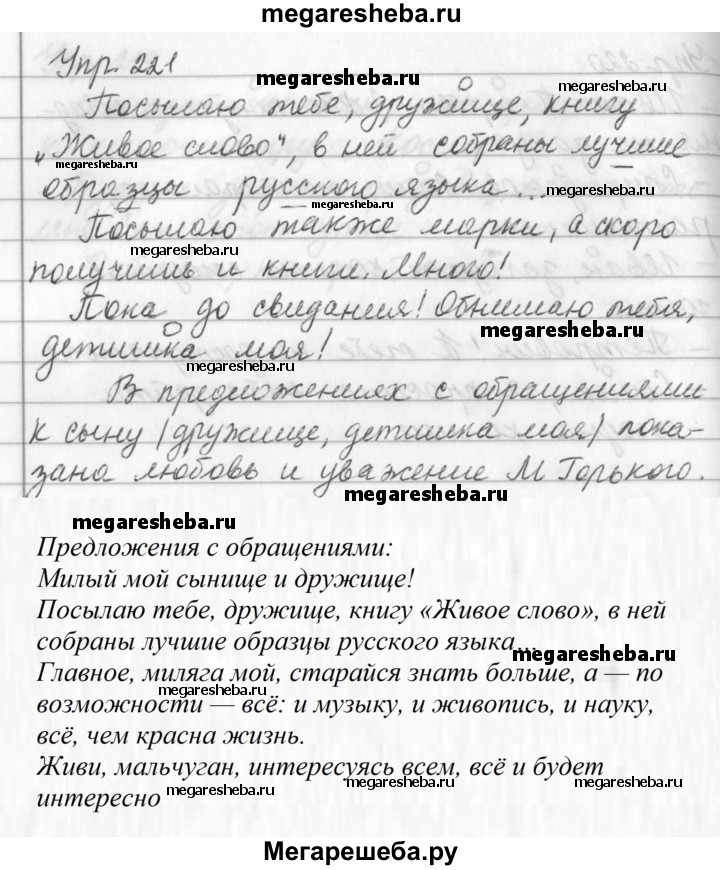 megaresheba.ru
Упр. 221
megaresheba.ru
megaresheba.ru
Посылаю тебе, дружище, книгу
„Живое слово“, в ней собраны лучшие
megaresheba.ru
megaresheba.ru
образцы русского языка...
megaresheba.ru
Посылаю также марки, а скоро
megaresheba.ru
получишь и книги. Много!
Пока до свидания! Обнимаю тебя,
megaresheba.ru
детишка моя!
В предложениях с обращениями
к сыну (дружище, детишка моя) пока-
зана любовь и уважение М. Горького.
megaresheba.ru
megaresheba.ru
Предложения с обращениями:
Милый мой сынище и дружище!
Посылаю тебе, дружище, книгу «Живое слово», в ней
собраны лучшие образцы русского языка...
megaresheba.ru
Главное, миляга мой, старайся знать больше, а — по
megaresheba.ru
возможности — всё: и музыку, и живопись, и науку,
всё, чем красна жизнь.
Живи, мальчуган, интересуясь всем, всё и будет
интересно
megaresheba.ru
megaresheba.ru
Мегарешеба.ру